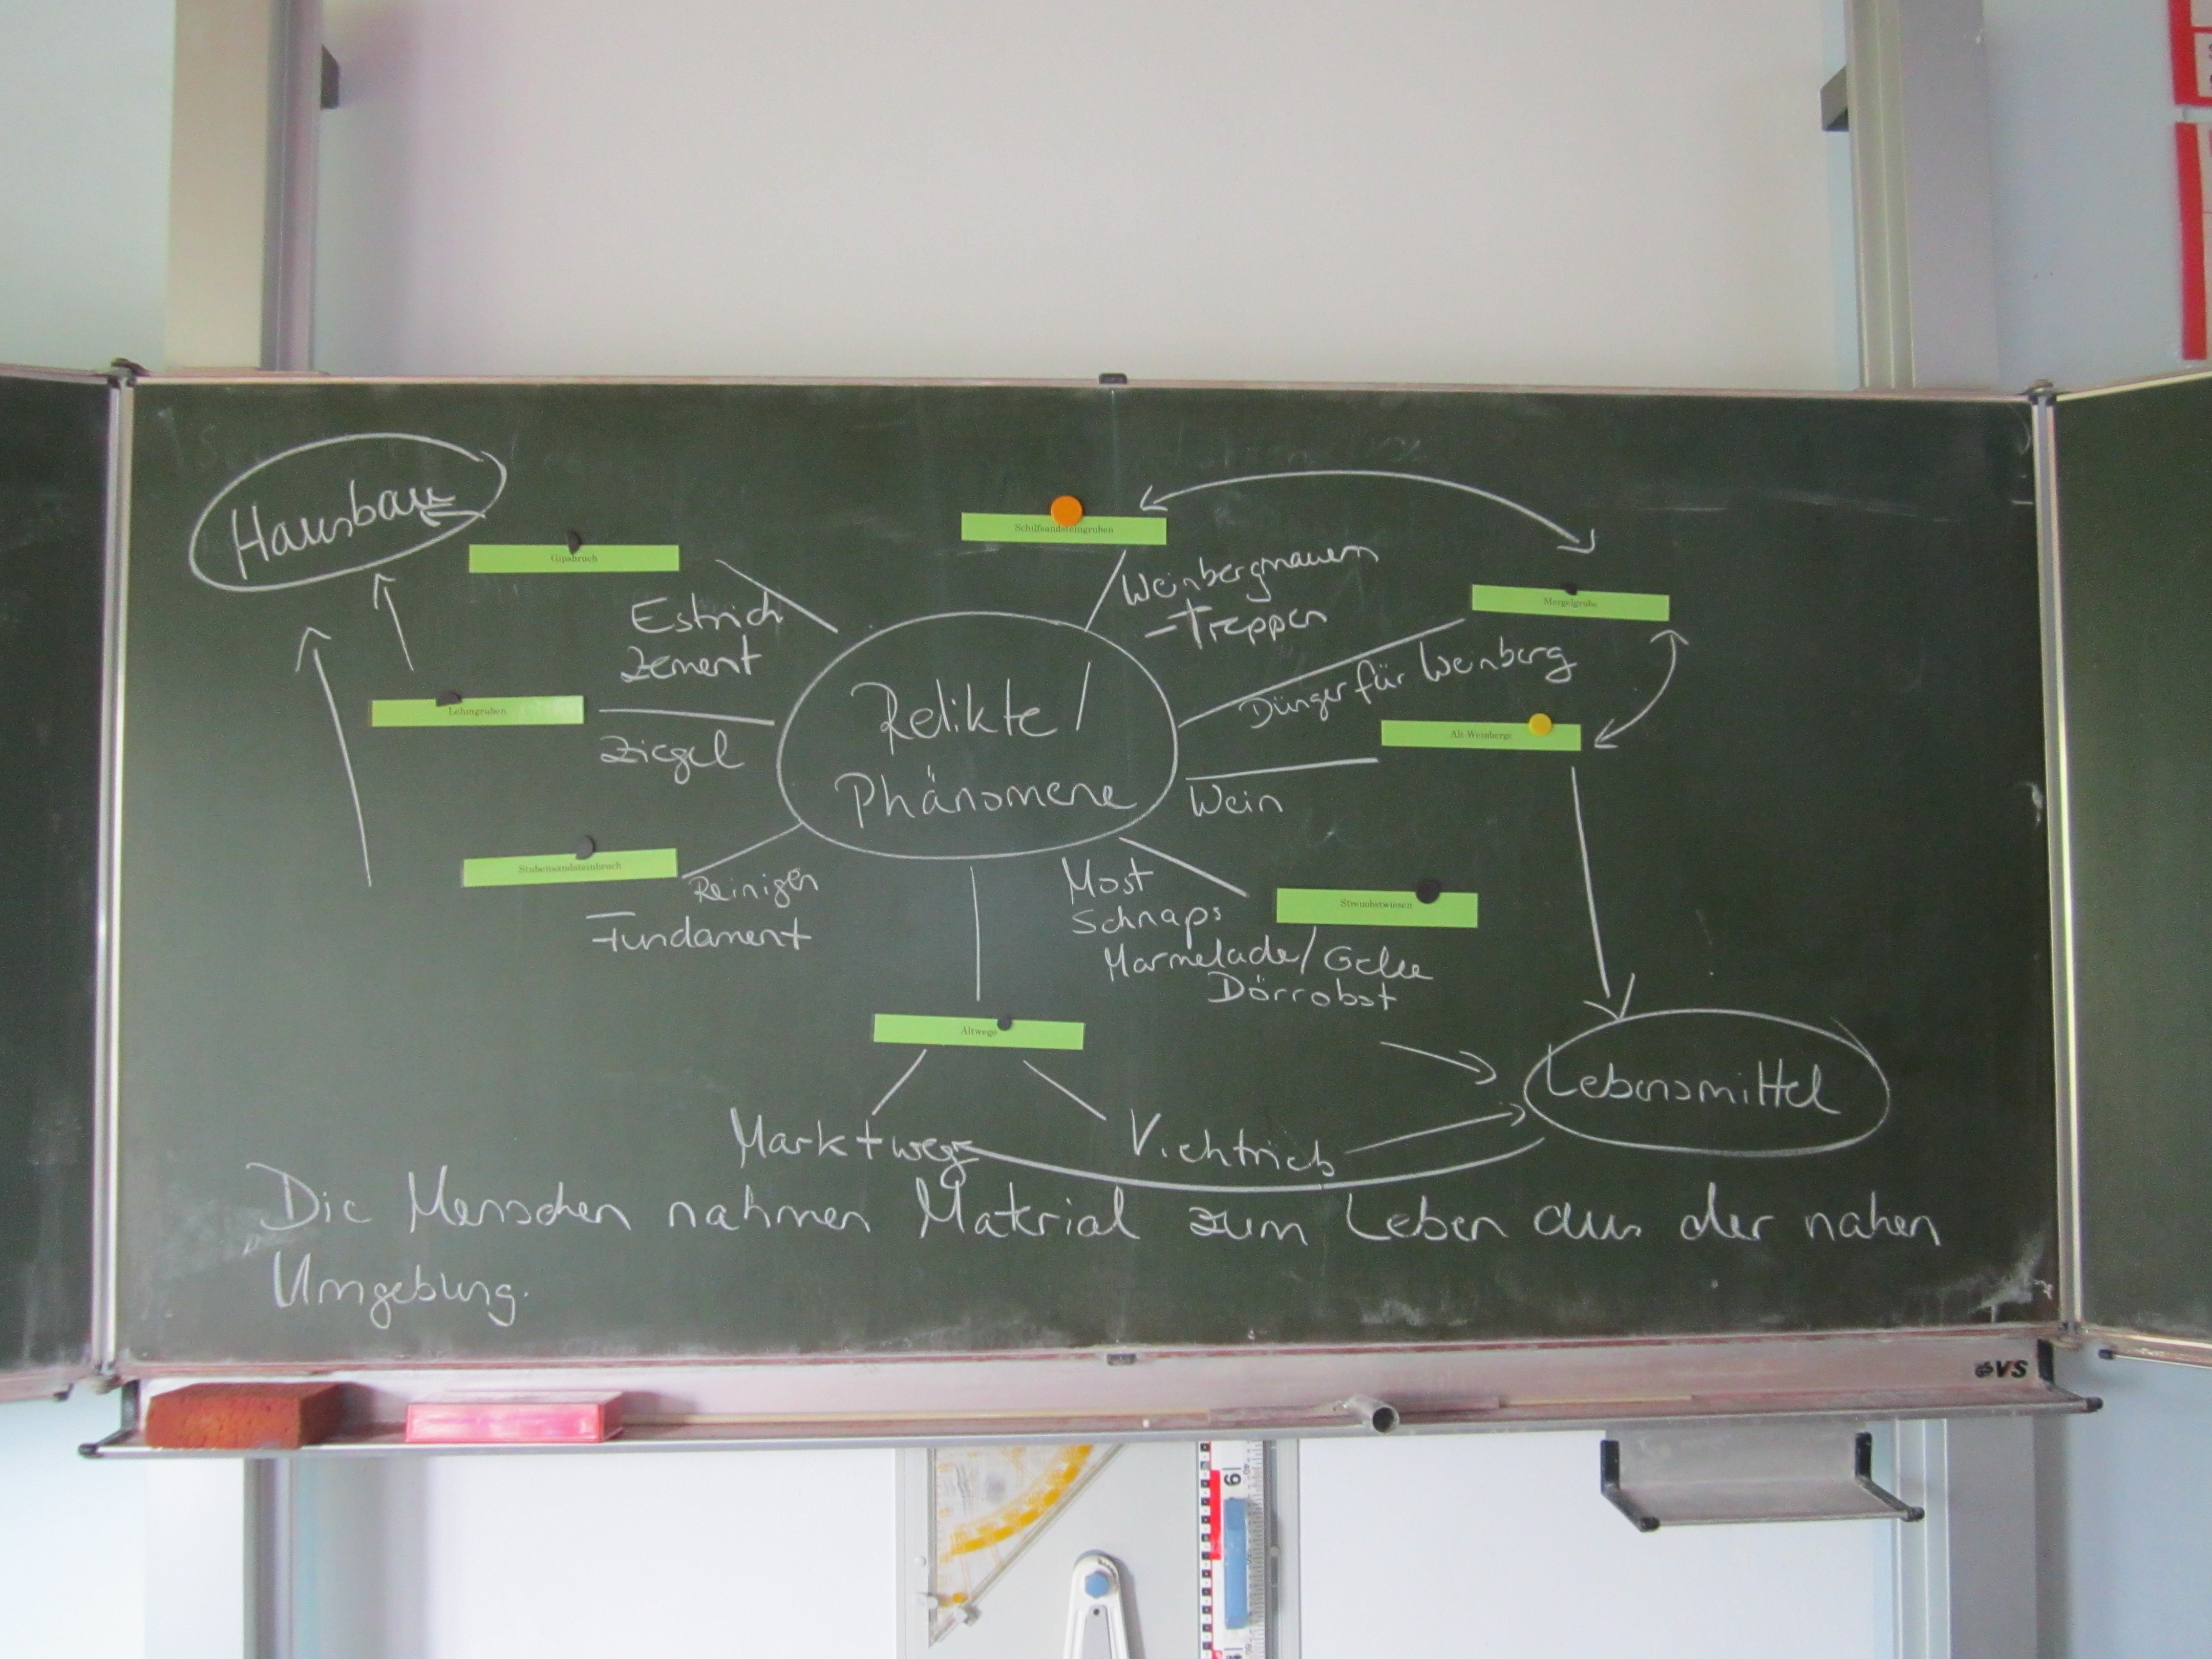 Hausbau
Gipsbruch
Schilfsandsteingruben
Weinbergmauern
-Treppen
Mergelgrube
Estrich
Zement
Dünger für Weinberg
Lehmgruben
Ziegel
Relikte /
Phänomene
Alt-Weinberge
Wein
Stubensandsteinbruch
Reinigen
Fundament
Most
Schnaps
Marmelade/Gelee
Dörrobst
Streuobstwiesen
Altwege
Marktwege
Viehtrieb
Lebensmittel
Die Menschen nahmen Material zum Leben aus der nahen
Umgebung.
VS